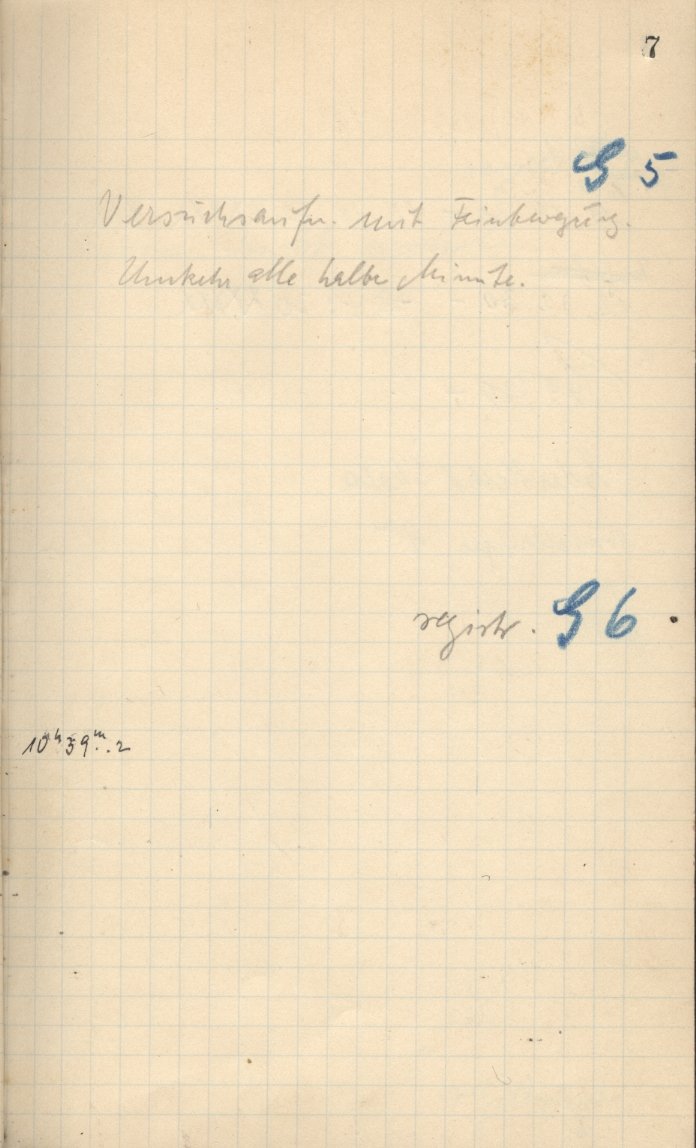 7
G 5
Versuchsaufn. mit Feinbewegung.
Umkehr alle halbe Minute.
registr. G 6
10ʰ39ᵐ.2